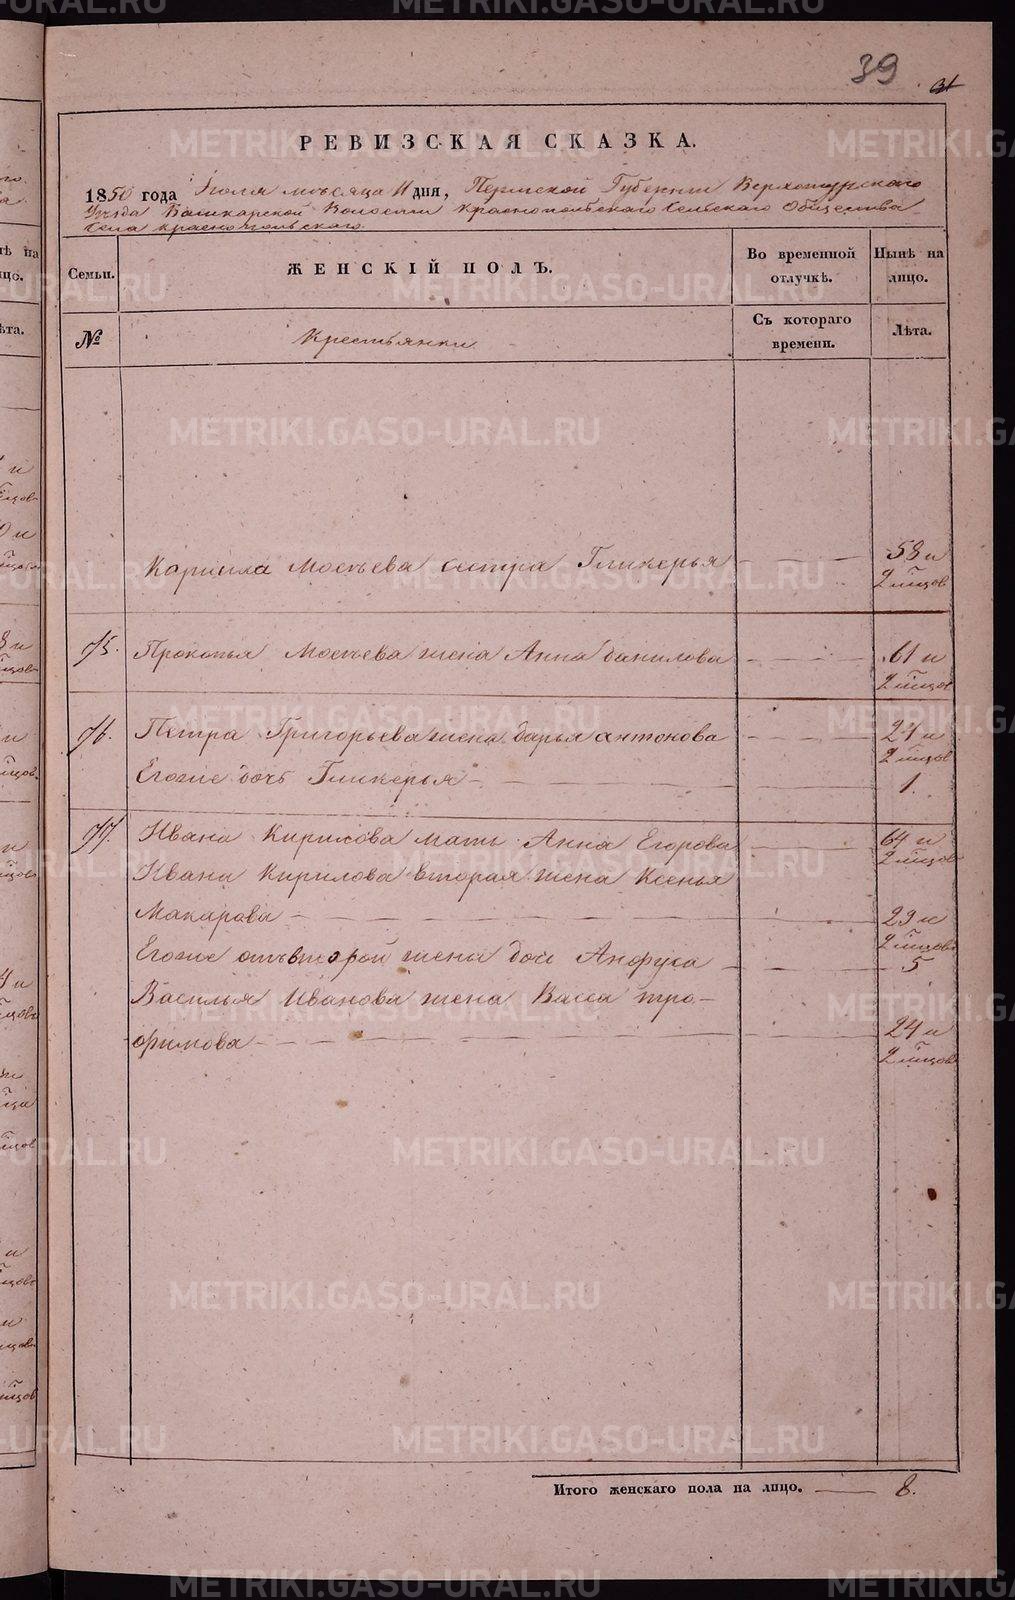 39
31
РЕВИЗСКАЯ СКАЗКА.
1850 года Іюля мѣсяца 11 дня, Пермской Губерніи Верхотурскаго
Уѣзда Башкарской Волости Краснопольскаго Сельскаго Общества
Села Краснопольскаго
Семьи.
ЖЕНСКІЙ ПОЛЪ.
Во временной отлучкѣ.
Нынѣ на лицо.
№
Крестьянки
Съ котораго времени.
Лѣта.
Карпила Мосѣева сестра Гликерья — 58 и
2 мѣсцов
75. Прокопья Мосѣева жена Анна Данилова — 61 и
2 мѣсцов
76. Петра Григорьева жена Дарья Антонова — 21 и
2 мѣсцов
Егоже дочь Гликерья — 1.
77. Ивана Кирилова мать Анна Егорова — 64 и
2 мѣсцов
Ивана Кирилова вторая жена Ксенья
Макарова — 29 и
2 мѣсцов
Егоже отъ второй жены дочь Анфуса — 5
Василья Иванова жена Васса Тро-
фимова — 24 и
2 мѣсцов
Итого женскаго пола на лицо. — 8.
METRIKI.GASO-URAL.RU